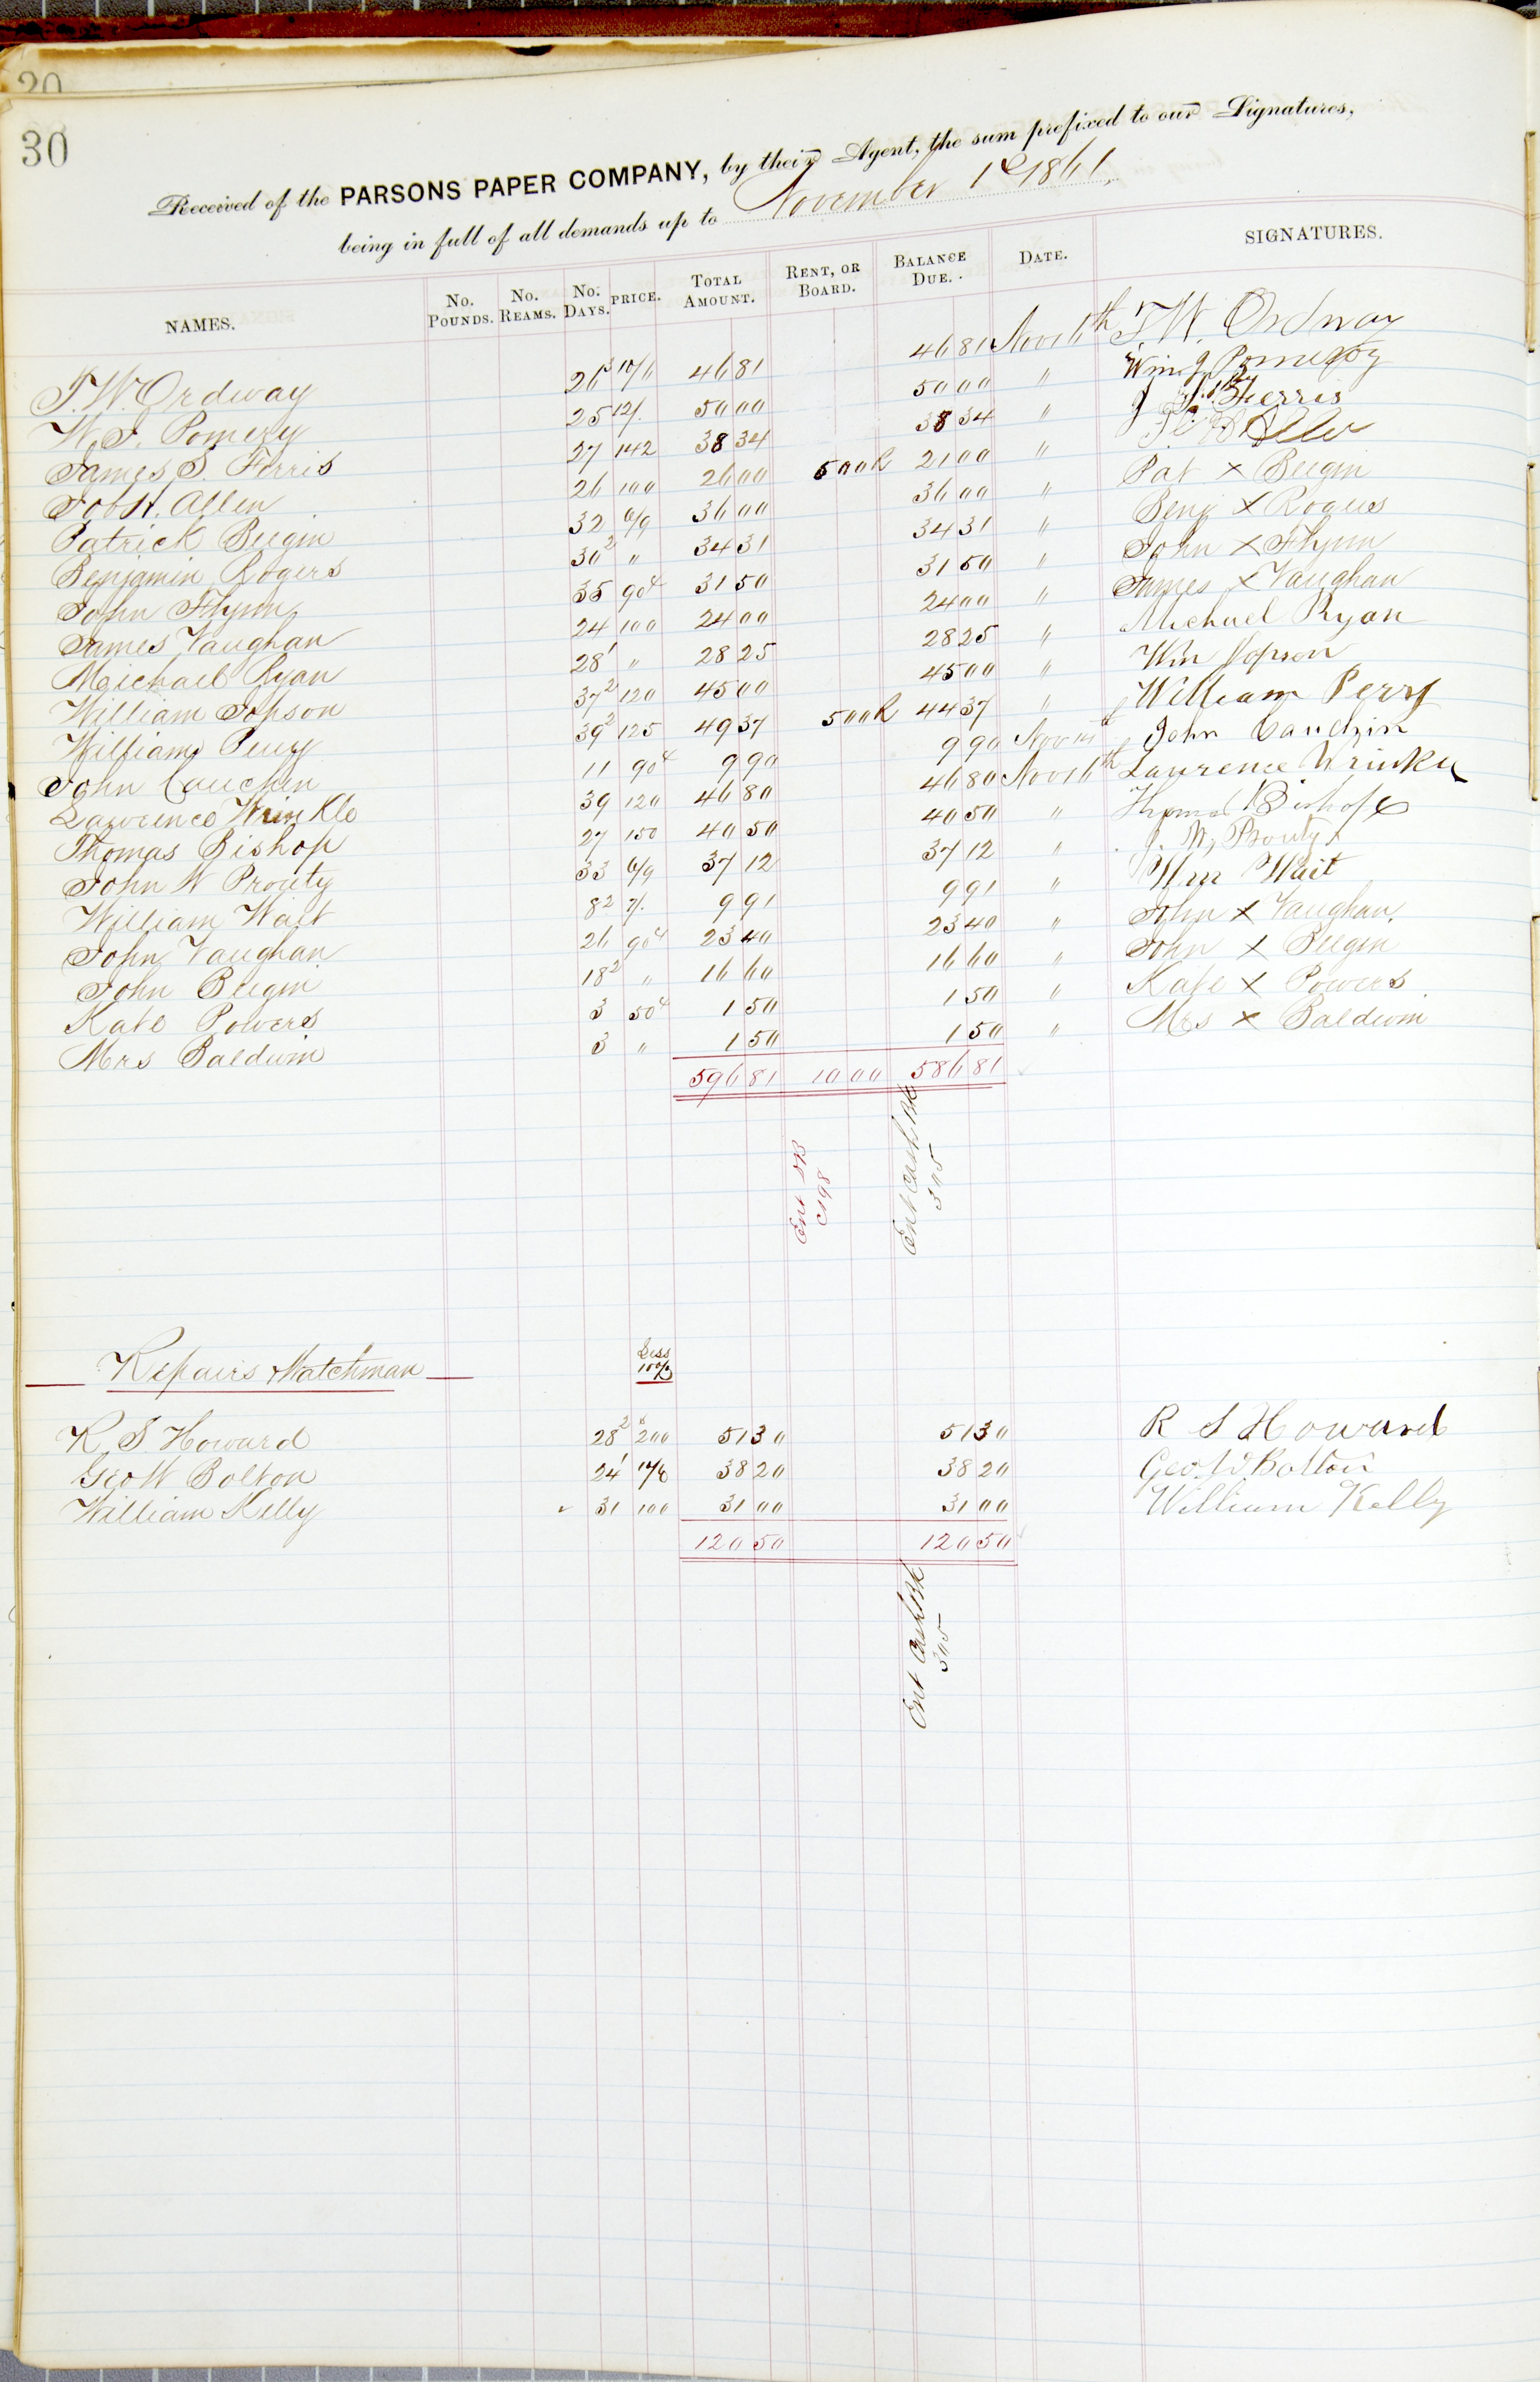 20
30
Received of the PARSONS PAPER COMPANY, by their Agent, the sum prefixed to our Signatures,
being in full of all demands up to November 1st 1861
NAMES. No. POUNDS. No. REAMS. No. DAYS. PRICE. TOTAL AMOUNT. RENT, OR BOARD. BALANCE DUE. DATE. SIGNATURES.
T. W. Ordway 26 3 10/6 46 81 46 81 Nov 16th T. W. Ordway
W. J. Pomeroy 25 12/. 50 00 50 00 " Wm J Pomeroy
James S. Ferris 27 142 38 34 38 34 " J. S. Ferris
Job H. Allen 26 100 26 00 5 00 R 21 00 "
Patrick Beegin 32 6/9 36 00 36 00 " Pat x Beegin
Benjamin Rogers 30 2 " 34 31 34 31 " Benj x Rogers
John Flynn 35 90 c 31 50 31 50 " John x Flynn
James Vaughan 24 100 24 00 24 00 " James x Vaughan
Michael Ryan 28 1 " 28 25 28 25 " Michael Ryan
William Jopson 37 2 120 45 00 45 00 " Wm Jopson
William Perry 39 2 125 49 37 5 00 R 44 37 " William Perry
John Cauchen 11 90 c 9 90 9 90 Nov John
Lawrence Wrinkle 39 120 46 80 46 80 Nov 16th Laurence Wrinkle
Thomas Bishop 27 150 40 50 40 50 " Thomas Bishop
John W Prouty 33 6/9 37 12 37 12 " J. W. Prouty
William Wait 8 2 7/. 9 91 9 91 " Wm Wait
John Vaughan 26 90 c 23 40 23 40 " John x Vaughan
John Beegin 18 2 " 16 60 16 60 " John x Beegin
Kate Powers 3 50 c 1 50 1 50 " Kate x Powers
Mrs Baldwin 3 " 1 50 1 50 " Mrs x Baldwin
596 81 10 00 586 81
Ent
C198
Ent Cash Bk
305
Repairs & Watchman Less 10%
R. S. Howard 28 2 200 51 30 51 30 R S Howard
Geo W Bolton 24 1 38 20 38 20 Geo. W Bolton
William Kelly 31 100 31 00 31 00 William Kelly
120 50 120 50
Ent Cash Bk
305